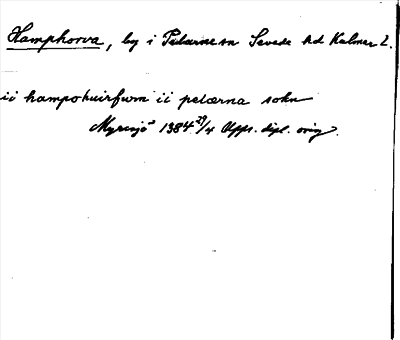 Hamphorva, by i Pelarne sn Sevede hd Kalmar l.
ii hampohuirfwm ii pelærna sokn
Myresjö 1384 29/4 Upps. dipl. orig.